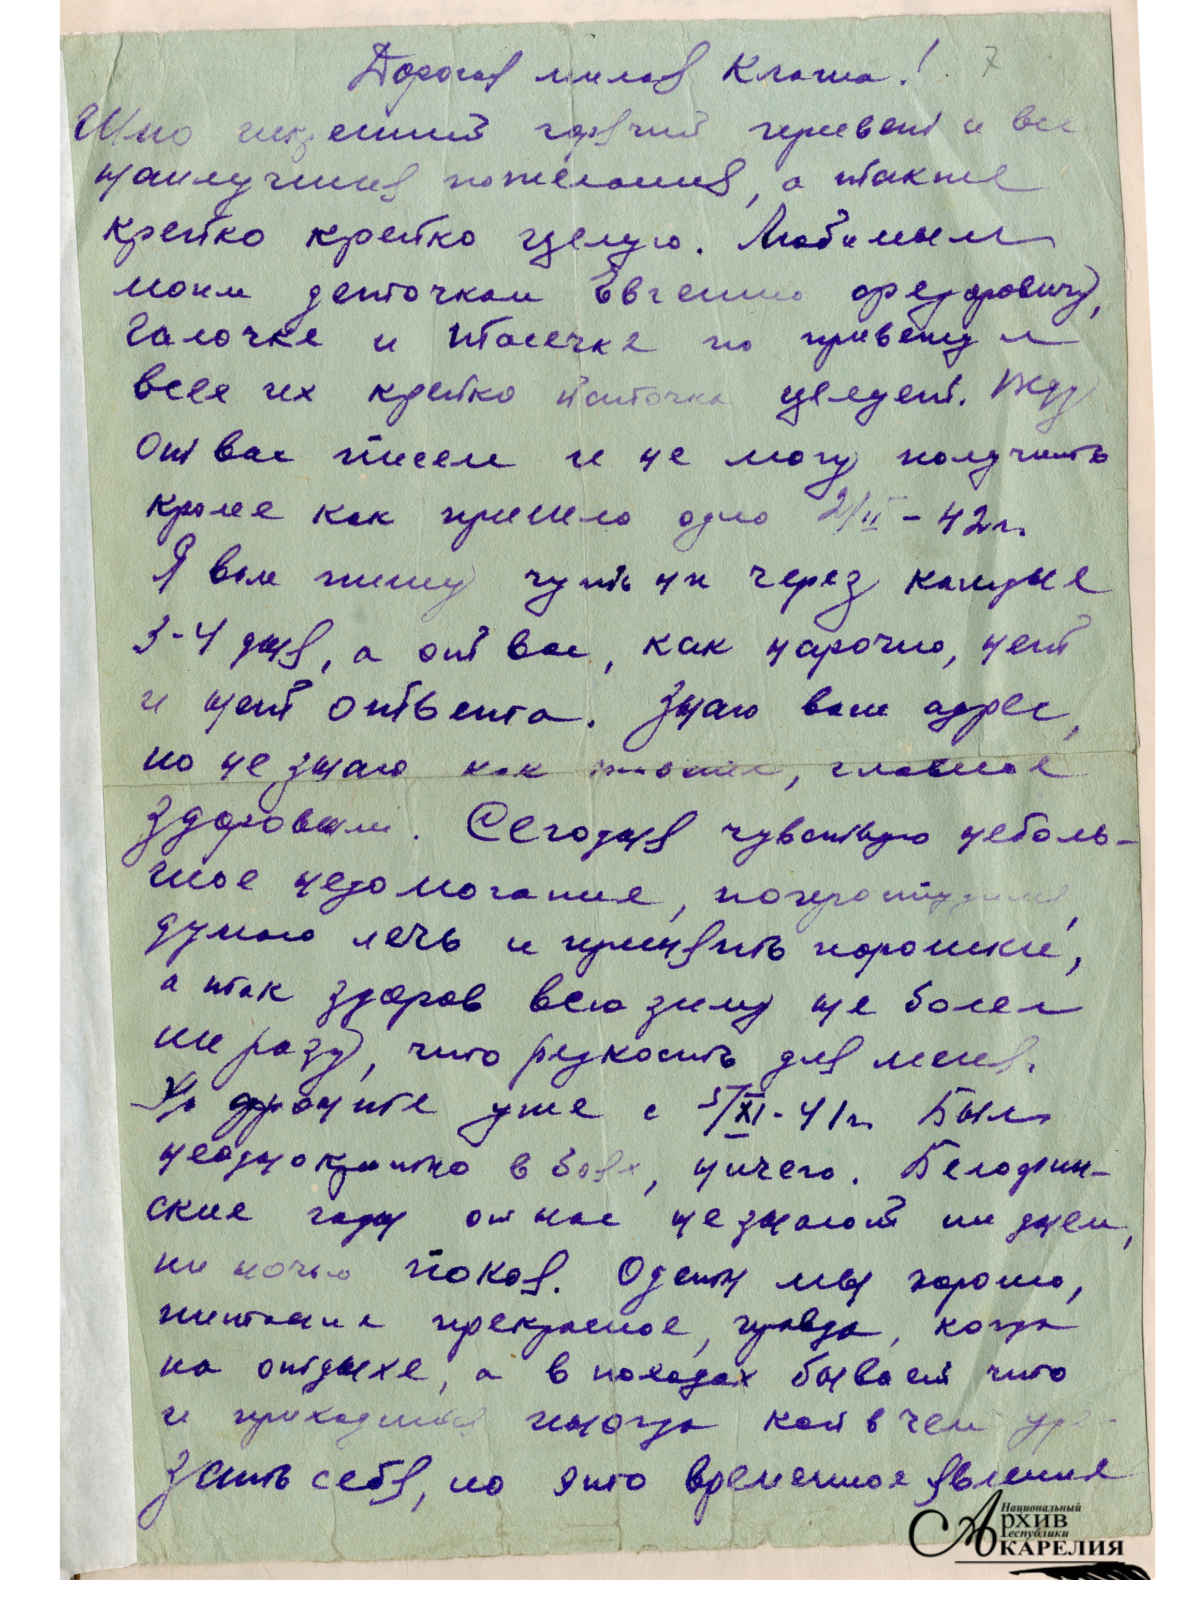 Дорогая милая Клаша! 7
Шлю искренний горячий привет и все
наилучшия пожелания, а также
крепко крепко целую. Любимым
моим деточкам Евгению Федоровичу,
Галочке и Тасечке по привету и
всех их крепко папочка целует. Жду
от вас писем и не могу получить
кроме как пришло одно 2/II – 42 г.
Я вам пишу чуть ли через каждые
3-4 дня, а от вас, как нарочно, нет
и нет ответа. Знаю ваш адрес,
но не знаю как живете, главное
здоровьем. Сегодня чувствую неболь-
шое недомогание,
думаю лечь и принять порошки,
а так здоров всю зиму не болел
ни разу, что редкость для меня.
На фронте уже с 5/XI-41 г. Был
неоднократно в боях, ничего. Белофин-
ские гады от нас не знают ни днем,
ни ночью покоя. Одеты мы хорошо,
питание прекрасное, правда, когда
на отдыхе, а в походах бывает что
и приходится иногда кой в чем уре-
зать себя, но это временное явление
Национальный
Архив
Республики
КАРЕЛИЯ